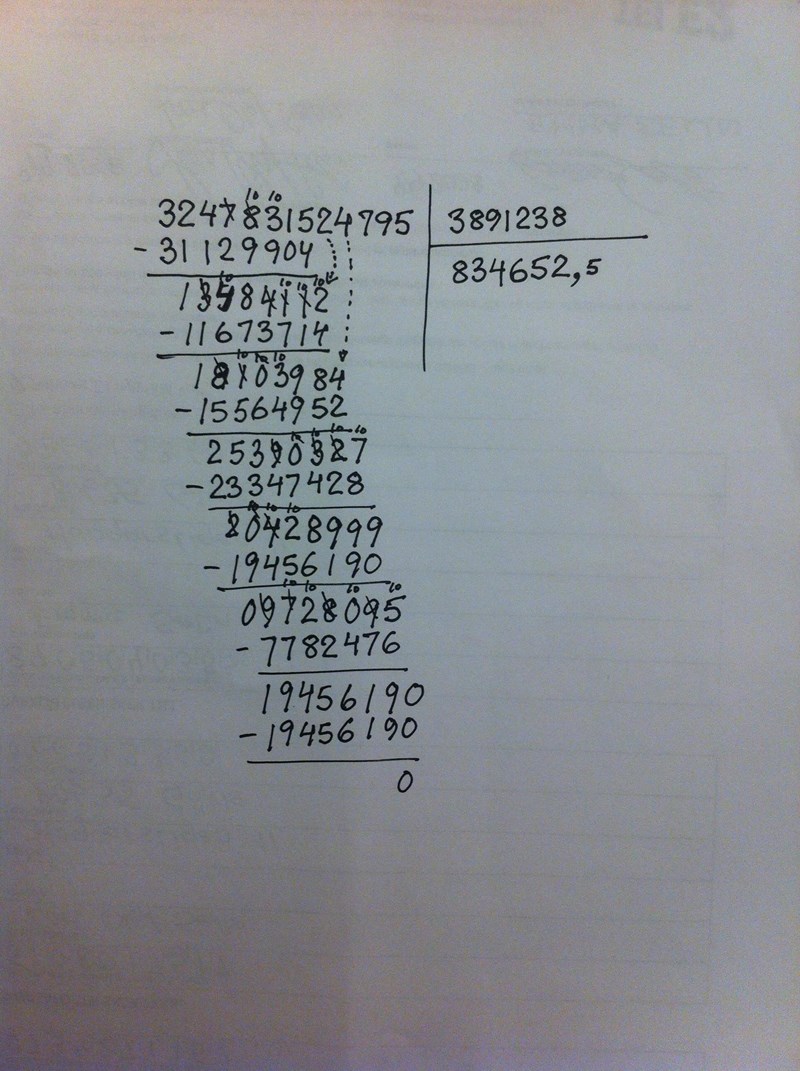 3247831524795 3891238
- 31129904 834652,5
13484112
- 11673714
18103984
- 15564952
25390327
- 23347428
20428999
- 19456190
09728095
- 7782476
19456190
- 19456190
0